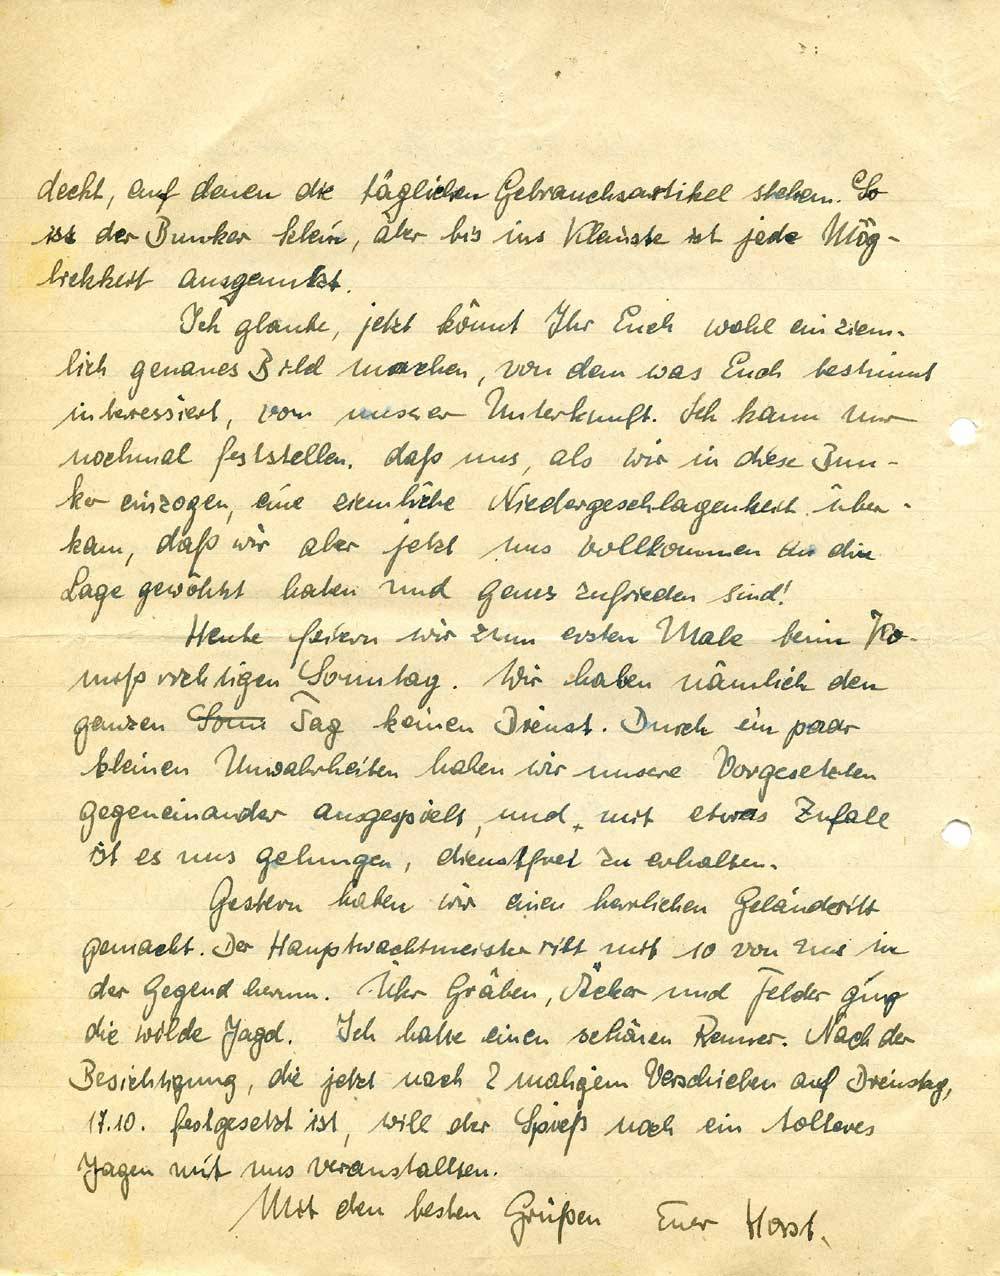 deckt, auf denen die täglichen Gebrauchsartikel stehen. So
ist der Bunker klein, aber bis ins Kleinste ist jede Mög-
lichkeit ausgenutzt.
Ich glaube, jetzt könnt Ihr Euch wohl ein ziem-
lich genaues Bild machen, von dem was Euch bestimmt
interessiert, von unserer Unterkunft. Ich kann nur
nochmal feststellen, daß uns, als wir in diese Bun-
ker einzogen, eine ziemliche Niedergeschlagenheit über-
kam, daß wir aber jetzt uns vollkommen an die
Lage gewöhnt haben und ganz zufrieden sind!
Heute feiern wir zum ersten Male beim Ko-
miß richtigen Sonntag. Wir haben nämlich den
ganzen Sonn Tag keinen Dienst. Durch ein paar
kleinen Unwahrheiten haben wir unsere Vorgesetzten
gegeneinander ausgespielt, und, mit etwas Zufall
ist es uns gelungen, dienstfrei zu erhalten.
Gestern haben wir einen herrlichen Geländeritt
gemacht. Der Hauptwachtmeister ritt mit 10 von uns in
der Gegend herum. Über Gräben, Äcker und Felder ging
die wilde Jagd. Ich hatte einen schönen Renner. Nach der
Besichtigung, die jetzt nach 2 maligem Verschieben auf Dienstag,
17.10. festgesetzt ist, will der Spieß noch ein tolleres
Jagen mit uns veranstallten.
Mit den besten Grüßen Euer Horst.